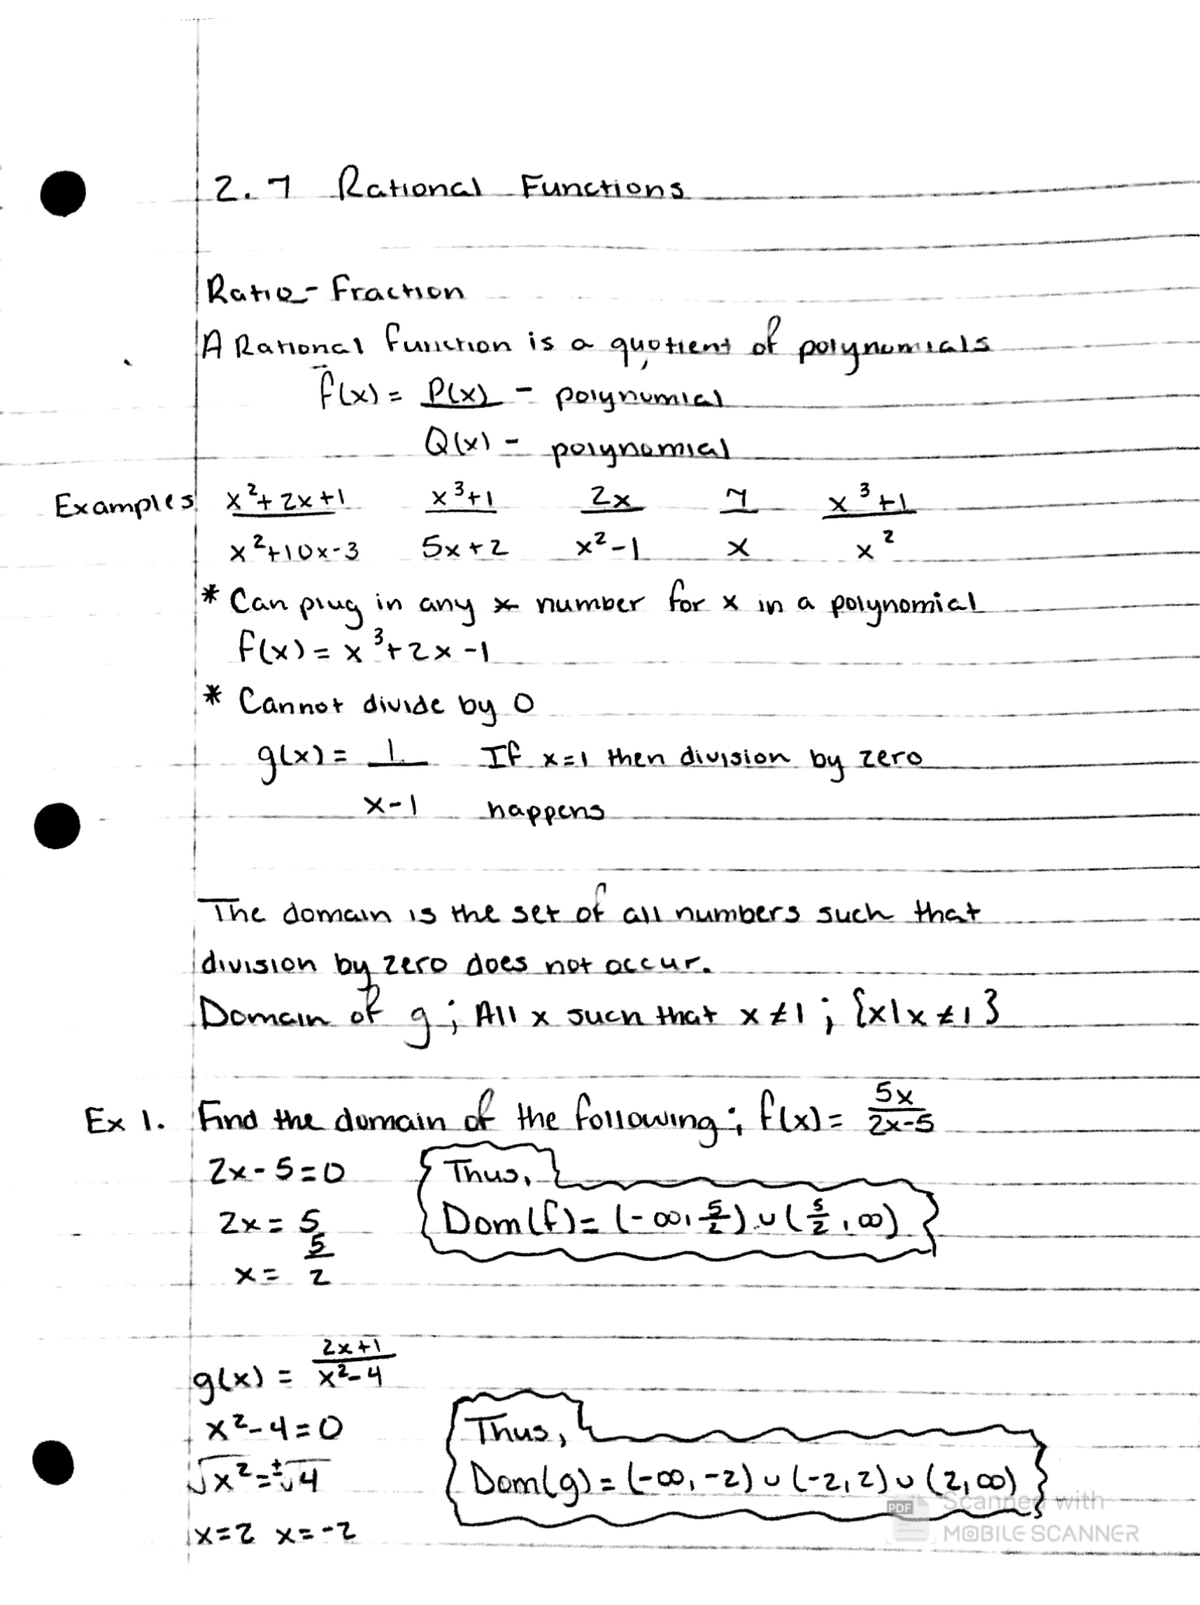 2.7 Rational Functions
Ratio - Fraction
A Rational function is a quotient of polynomials
f(x) = P(x) - polynomial
Q(x) - polynomial
Examples x²+2x+1 x³+1 2x 7 x³+1
x²+10x-3 5x+2 x²-1 x x²
* Can plug in any number for x in a polynomial
f(x) = x³+2x-1
* Cannot divide by 0
g(x) = 1 If x=1 then division by zero
x-1 happens
The domain is the set of all numbers such that
division by zero does not occur.
Domain of g; All x such that x≠1; {x|x≠1}
Ex 1. Find the domain of the following; f(x) = 5x/2x-5
2x-5=0 Thus,
2x=5 Dom(f)= (-∞, 5/2) ∪ (5/2, ∞)
x= 5/2
g(x) = 2x+1/x²-4
x²-4=0 Thus,
√x²=±√4 Dom(g)= (-∞,-2) ∪ (-2,2) ∪ (2,∞)
x=2 x=-2
PDF Scanned with
MOBILE SCANNER